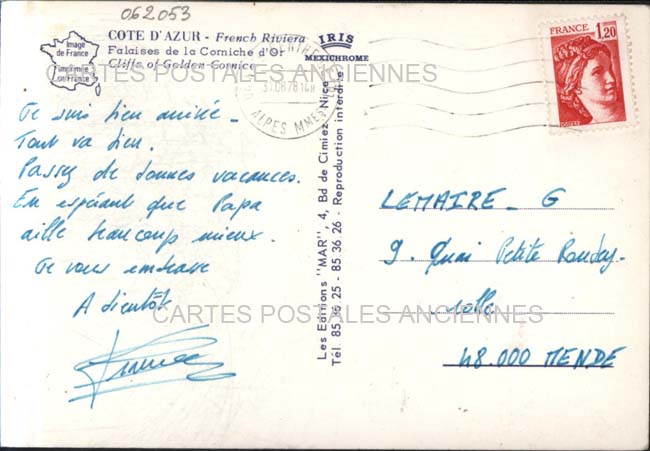 062053
COTE D'AZUR - French Riviera
Falaises de la Corniche d'Or
Cliffs of Golden Cornice
Image
de France
Imprimée
en France
IRIS
MEXICHROME
31.08.78 14H
ALPES MMES
FRANCE 1,20
POSTES
CARTES POSTALES ANCIENNES
Je suis bien arrivé.
Tout va bien.
Passez de bonnes vacances.
En espérant que Papa
aille beaucoup mieux.
Je vous embrasse
A bientôt
Les Editions "MAR", 4, Bd de Cimiez Nice
Tél. 85 36 25 - 85 36 26 - Reproduction interdite
LEMAIRE - G
9. Quai Petite
48.000 MENDE
CARTES POSTALES ANCIENNES